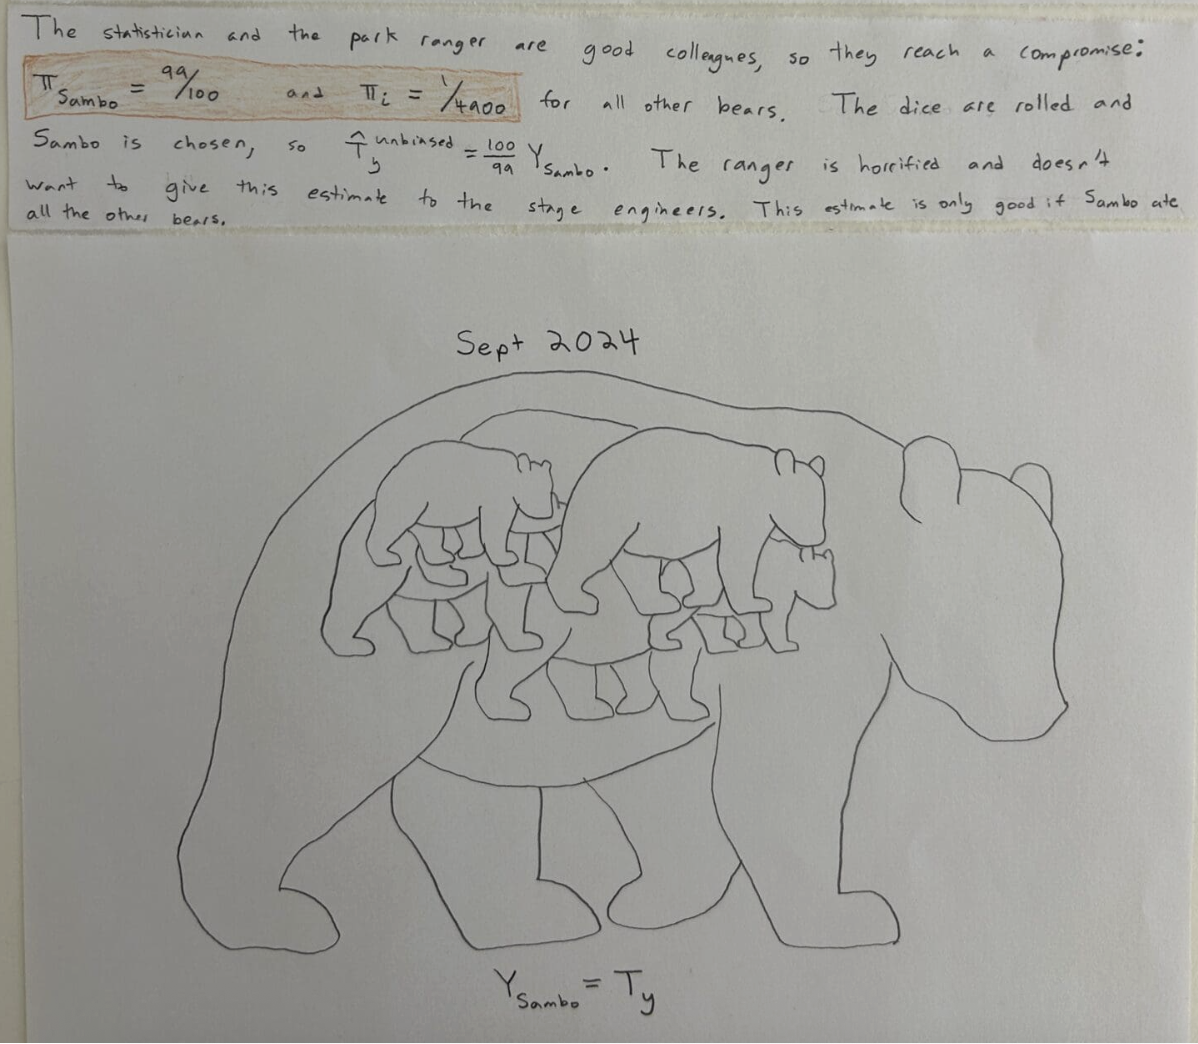 The statistician and the park ranger are good colleagues, so they reach a compromise:
π_Sambo = 99/100 and π_i = 1/4900 for all other bears. The dice are rolled and
Sambo is chosen, so T̂_y^unbiased = 100/99 Y_Sambo. The ranger is horrified and doesn't
want to give this estimate to the stage engineers. This estimate is only good if Sambo ate
all the other bears.
Sept 2024
Y_Sambo = T_y